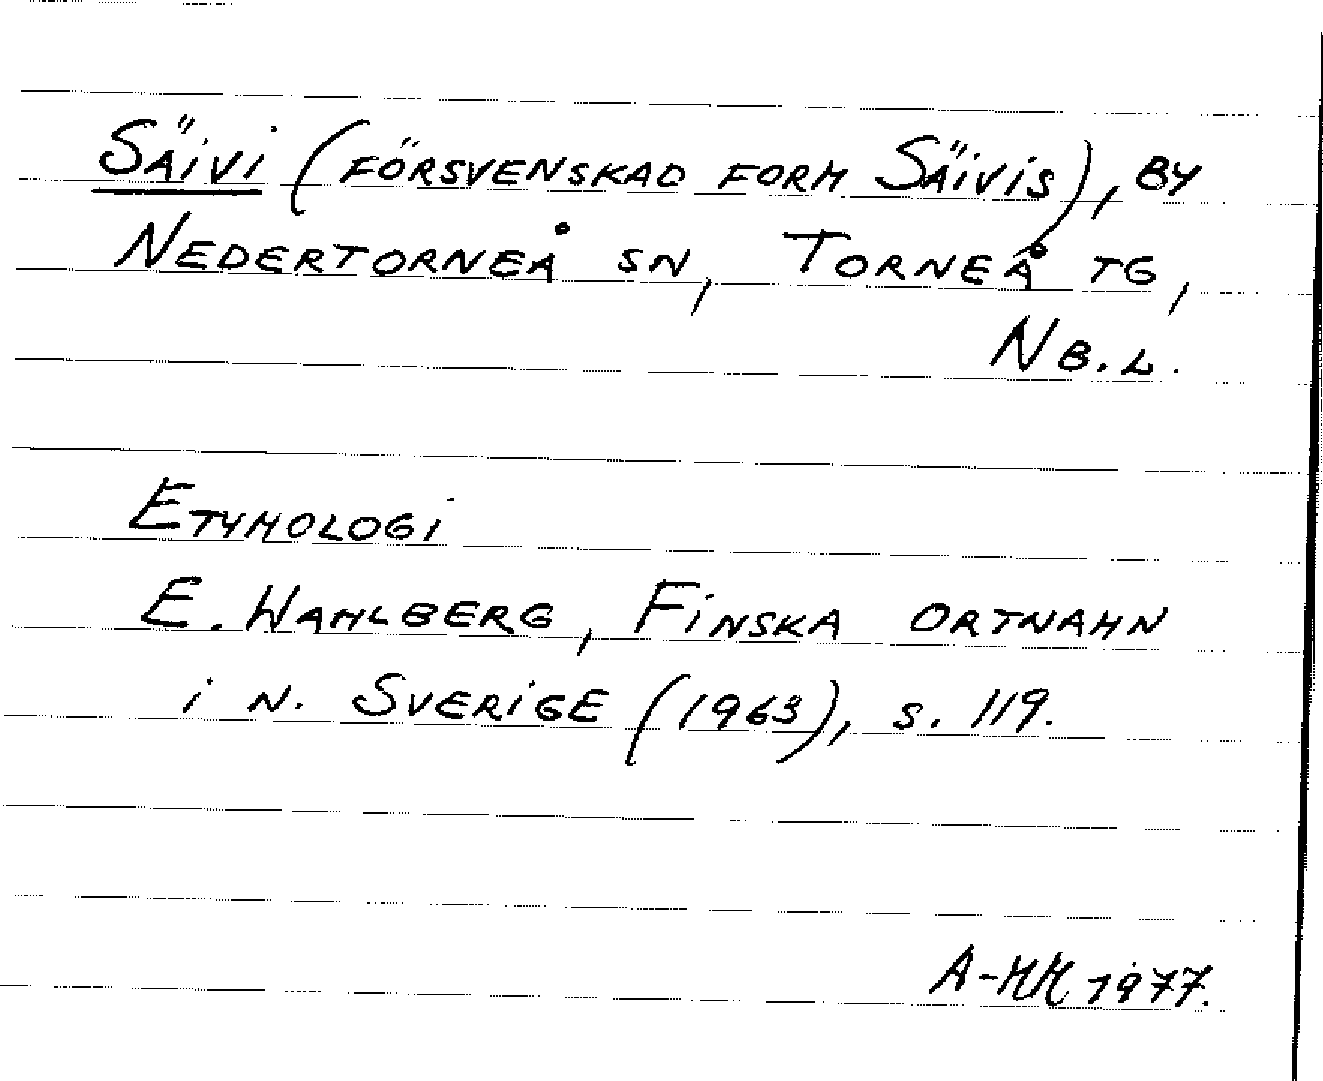 Säivi (försvenskad form Säivis), by
Nedertorneå sn, Torneå tg,
Nb.l.
Etymologi
E. Wahlberg, Finska ortnamn
i n. Sverige (1963), s. 119.
A-MM 1977.